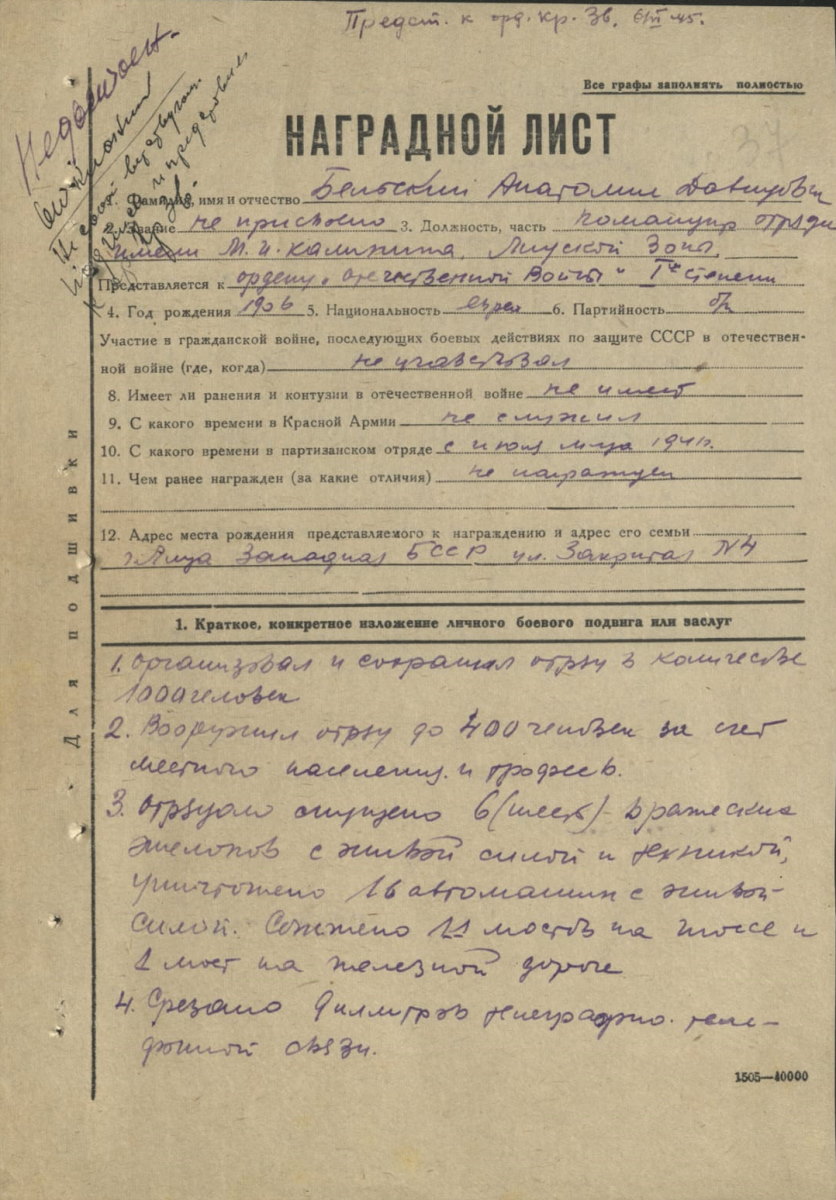 Предст. к орд. Кр. Зв. 6/III 45.
Все графы заполнять полностью
НАГРАДНОЙ ЛИСТ
1. Фамилия, имя и отчество Бельский Анатолий Давидович
2. Звание не присвоено 3. Должность, часть командир отряда
имени М.И. Калинина, Зоны
Представляется к ордену „отечественной Войны" Iй степени
4. Год рождения 1906 5. Национальность еврей 6. Партийность б/п
Участие в гражданской войне, последующих боевых действиях по защите СССР в отечествен-
ной войне (где, когда) не участвовал
8. Имеет ли ранения и контузии в отечественной войне не имеет
9. С какого времени в Красной Армии не служил
10. С какого времени в партизанском отряде с июля м-ца 1941г.
11. Чем ранее награжден (за какие отличия) не награжден
12. Адрес места рождения представляемого к награждению и адрес его семьи
г. Лида Западная БССР ул. Закрытая №4
Для подшивки
1. Краткое, конкретное изложение личного боевого подвига или заслуг
1. Организовал и сохранил отряд в количестве
1000 человек
2. Вооружил отряд до 400 человек за счет
местного населения и трофеев.
3. Отрядом спущено 6 (шесть) вражеских
эшелонов с живой силой и техникой,
уничтожено 16 автомашин с живой
силой. Сожжено 11 мостов на шоссе и
1 мост на железной дороге
4. Срезано телеграфно-теле-
фонной связи.
1505—40000
37